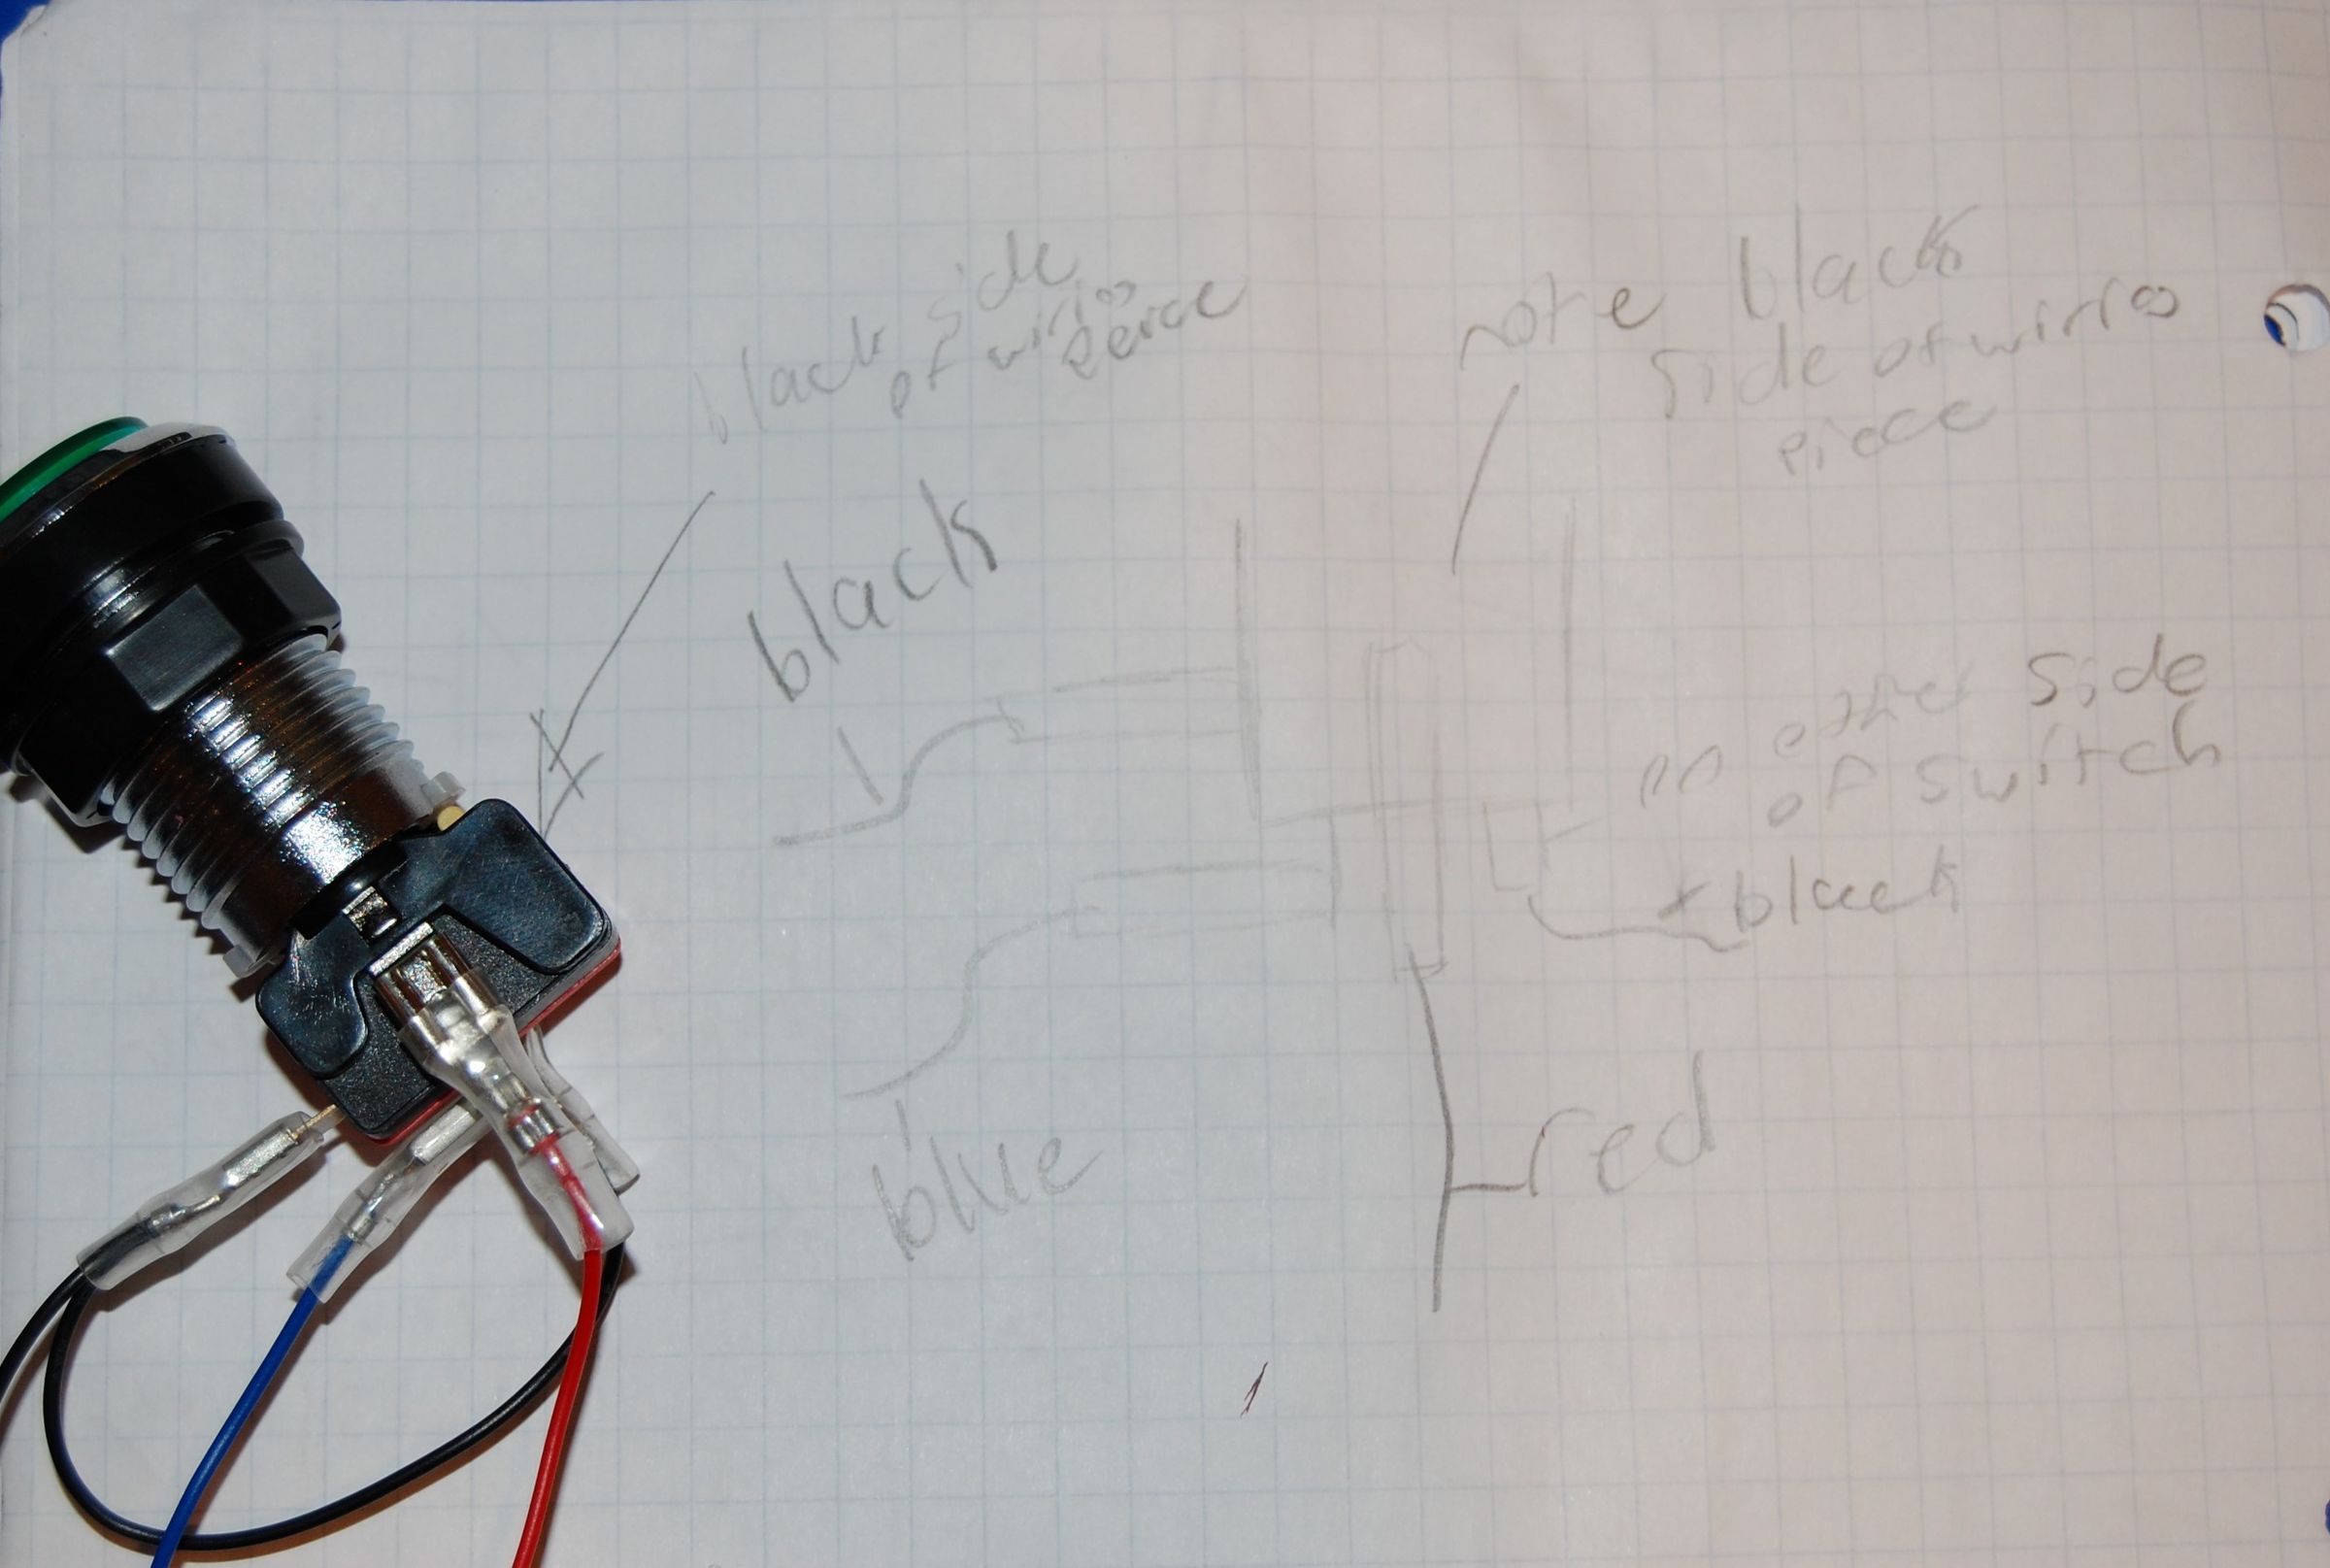 black side
of wiring
peice
note black
side of wiring
piece
black
on other side
of switch
black
blue
red